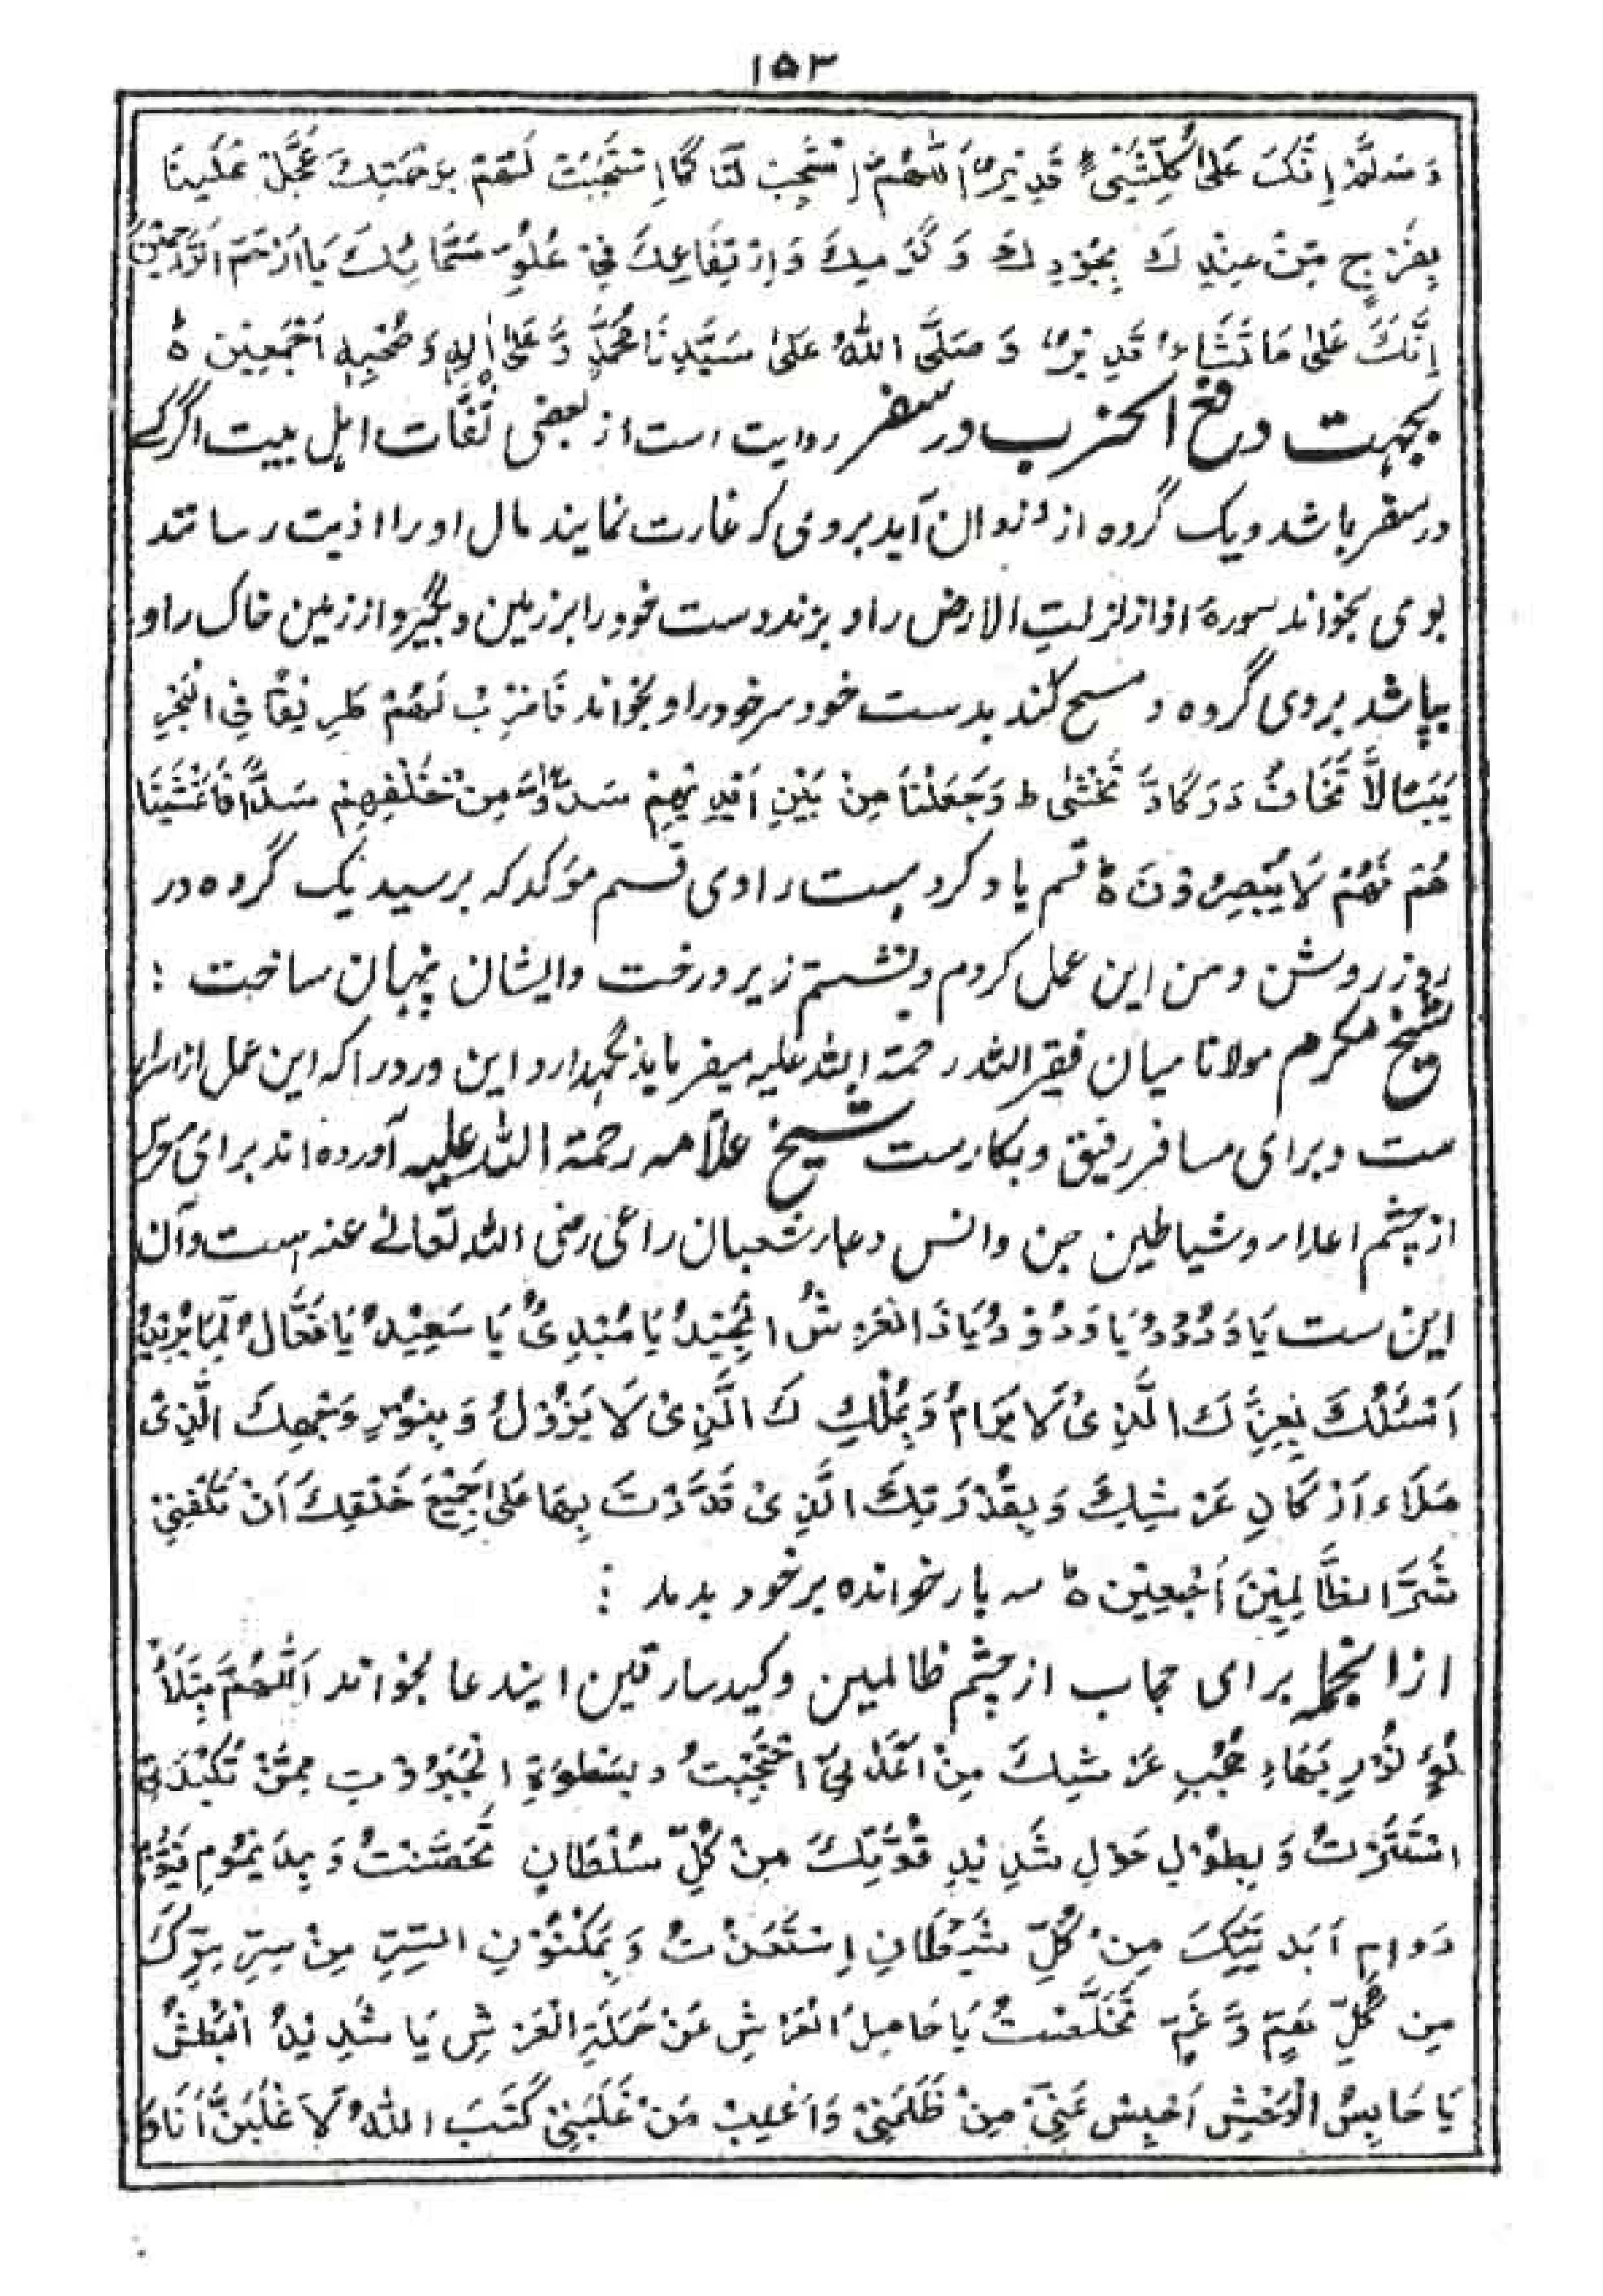 ۱۵۳
وَسَلَّمْ اِنَّكَ عَلىٰ كُلِّشَیْءٍ قَدِیْرٌ اَللّٰهُمَّ اسْتَجِبْ لَنَا كَمَا اِسْتَجَبْتَ لَهُمْ بِرَحْمَتِكَ عَجِّلْ عَلَیْنَا
بِفَرَجٍ مِّنْ عِنْدِكَ بِجُوْدِكَ وَكَرَمِكَ وَاِرْتِفَاعِكَ فِیْ عُلُوِّ سَمَائِكَ یَا اَرْحَمَ الرَّاحِمِیْنَ
اِنَّكَ عَلىٰ مَا تَشَاءُ قَدِیْرٌ وَصَلَّی اللهُ عَلىٰ سَیِّدِنَا مُحَمَّدٍ وَّعَلىٰ اٰلِهٖ وَصَحْبِهٖ اَجْمَعِیْن ہ
بجہت دفع الحزب در سفر روایت است از بعضی ثقات اہل بیت اگر کسے
در سفر باشد و یک گروہ از دزدان آید بروی کہ غارت نمایند مال او را اذیت رسانند
بوی بخواند سورۂ اذا زلزلتِ الارض را و بزند دست خود را بر زمین و بگیرد از زمین خاک را و
بپاشد بروی گروہ و مسح کند بدست خود سر خود را و بخواند فَاضْرِبْ لَهُمْ طَرِیْقًا فِی الْبَحْرِ
یَبَسًا لَّا تَخَافُ دَرَكًا وَّ تَخْشٰی ط وَجَعَلْنَا مِنْ بَیْنِ اَیْدِیْهِمْ سَدًّا وَّمِنْ خَلْفِهِمْ سَدًّا فَاَغْشَیْنَا
هُمْ فَهُمْ لَا یُبْصِرُوْنَ ہ قسم یاد کردہ است راوی قسم مؤکد کہ برسید یک گروہ در
روز روشن و من این عمل کردم و نشستم زیر درخت و ایشان پنہان ساخت :
شیخ مکرم مولانا میان فقیر اللہ رحمۃ اللہ علیہ میفرمایند نگہدارد این ورد را کہ این عمل از اسرار
ست و برای مسافر رفیق و بکارست شیخ علامہ رحمۃ اللہ علیہ آوردہ اند برای
از چشم اعداء و شیاطین جن و انس دعاء شعبان راعی رضی اللہ تعالےٰ عنہ است و آن
این ست یَا وَدُوْدُ یَا وَدُوْدُ یَا ذَا الْعَرْشِ الْمَجِیْدُ یَا مُبْدِیُٔ یَا سَعِیْدُ یَا فَعَّالُ لِّمَا یُرِیْدُ
اَسْئَلُكَ بِعِزِّكَ الَّذِیْ لَا یُرَامُ وَبِمُلْكِكَ الَّذِیْ لَا یَزُوْلُ وَبِنُوْرِ وَجْهِكَ الَّذِیْ
مَلَاءَ اَرْكَانِ عَرْشِكَ وَبِقُدْرَتِكَ الَّذِیْ قَدَّرْتَ بِهَا عَلىٰ جَمِیْعِ خَلْقِكَ اَنْ تَكْفِیَنِیْ
شَرَّ الظَّالِمِیْنَ اَجْمَعِیْن ہ سہ بار خواندہ بر خود بدمد :
از انجملہ برای حجاب از چشم ظالمین و کید سارقین ایندعا بخواند اَللّٰهُمَّ بِتَلَأْ
لُؤِ نُوْرِ بَهَاءِ حُجُبِ عَرْشِكَ مِنْ اَعْدَائِیْ احْتَجَبْتُ وَبِسَطْوَةِ الْجَبَرُوْتِ مِمَّنْ یَّكِیْدُنِیْ
اسْتَتَرْتُ وَبِطَوْلِ حَوْلِ شَدِیْدِ قُوَّتِكَ مِنْ كُلِّ سُلْطَانٍ تَحَصَّنْتُ وَبِدَیْمُوْمِ قَیُّوْمِ
دَوَامِ اَبَدِیَّتِكَ مِنْ كُلِّ شَیْطَانٍ اِسْتَعَذْتُ وَبِمَكْنُوْنِ السِّرِّ مِنْ سِرِّ سِرِّكَ
مِنْ كُلِّ هَمٍّ وَّغَمٍّ تَخَلَّصْتُ یَا حَامِلَ الْعَرْشِ عَنْ حَمَلَةِ الْعَرْشِ یَا شَدِیْدُ الْبَطْشِ
یَا حَابِسُ الْوَحْشِ اَحْبِسْ عَنِّیْ مِنْ ظَلَمَنِیْ وَاَغْلِبْ مَنْ غَلَبَنِیْ كَتَبَ اللهُ لَاَغْلِبَنَّ اَنَا وَ